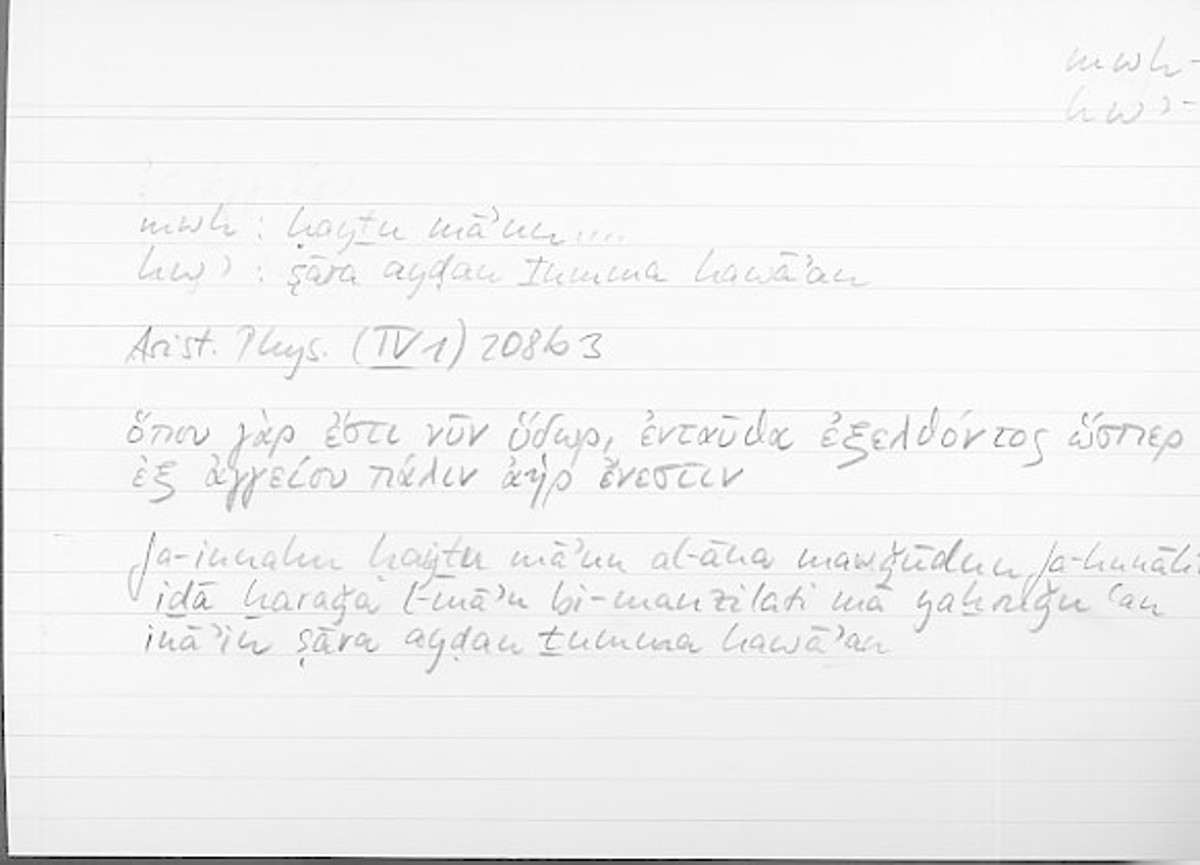 mwh-
hwʾ-
mwh : ḥayṯu māʾun ....
hwʾ : ṣāra ayḍan ṯumma hawāʾan
Arist. Phys. (IV 1) 208b3
ὅπου γὰρ ἔστι νῦν ὕδωρ, ἐνταῦθα ἐξελθόντος ὥσπερ
ἐξ ἀγγείου πάλιν ἀὴρ ἔνεστιν
fa-innahu ḥayṯu māʾun al-āna mawǧūdun fa-hunāk
iḏā ḫaraǧa l-māʾu bi-manzilati mā yaḫruǧu ʿan
ināʾin ṣāra ayḍan ṯumma hawāʾan